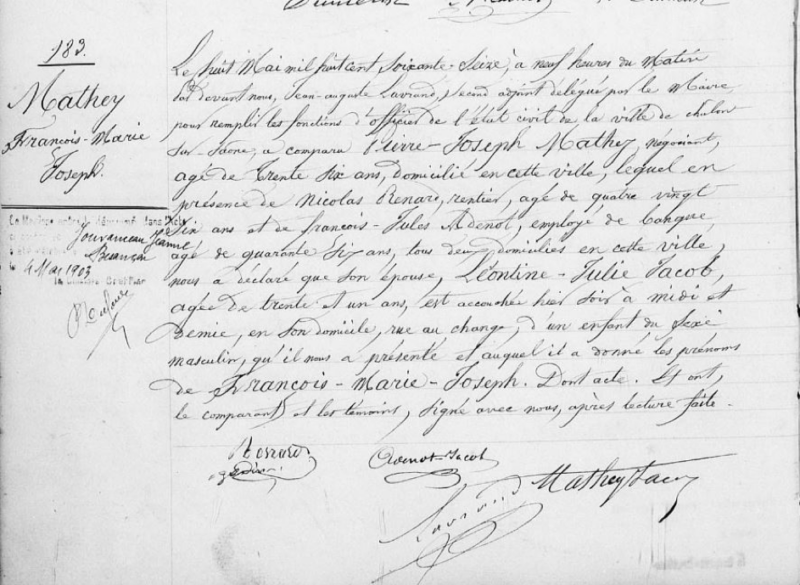 183.
Mathey
François-Marie
Joseph.
Jouvanceau Jeanne
4 Mai 1903
Le huit Mai mil huit cent soixante-seize, à neuf heures du Matin
par devant nous, Jean-auguste Lavrand, second adjoint délégué par le Maire
pour remplir les fonctions d'officier de l'état civil de la ville de chalon
sur-Saône, a comparu Pierre-Joseph Mathey, négociant,
agé de Trente Six ans, domicilié en cette ville, lequel en
présence de Nicolas Renard, rentier, agé de quatre vingt
Six ans et de françois-Jules Adenot, employé de banque,
agé de quarante Six ans, tous deux domiciliés en cette ville,
nous a déclaré que son épouse, Léontine-Julie Jacob,
agée de trente et un ans, est accouchée hier soir à midi et
demie, en son domicile, rue au change, d'un enfant du sexe
masculin, qu'il nous a présenté et auquel il a donné les prénoms
de François-Marie-Joseph. Dont acte. Et ont,
le comparant et les témoins, signé avec nous, après lecture faite.
Renard
Adenot-Jacob
Lavrand
Mathey Jacob